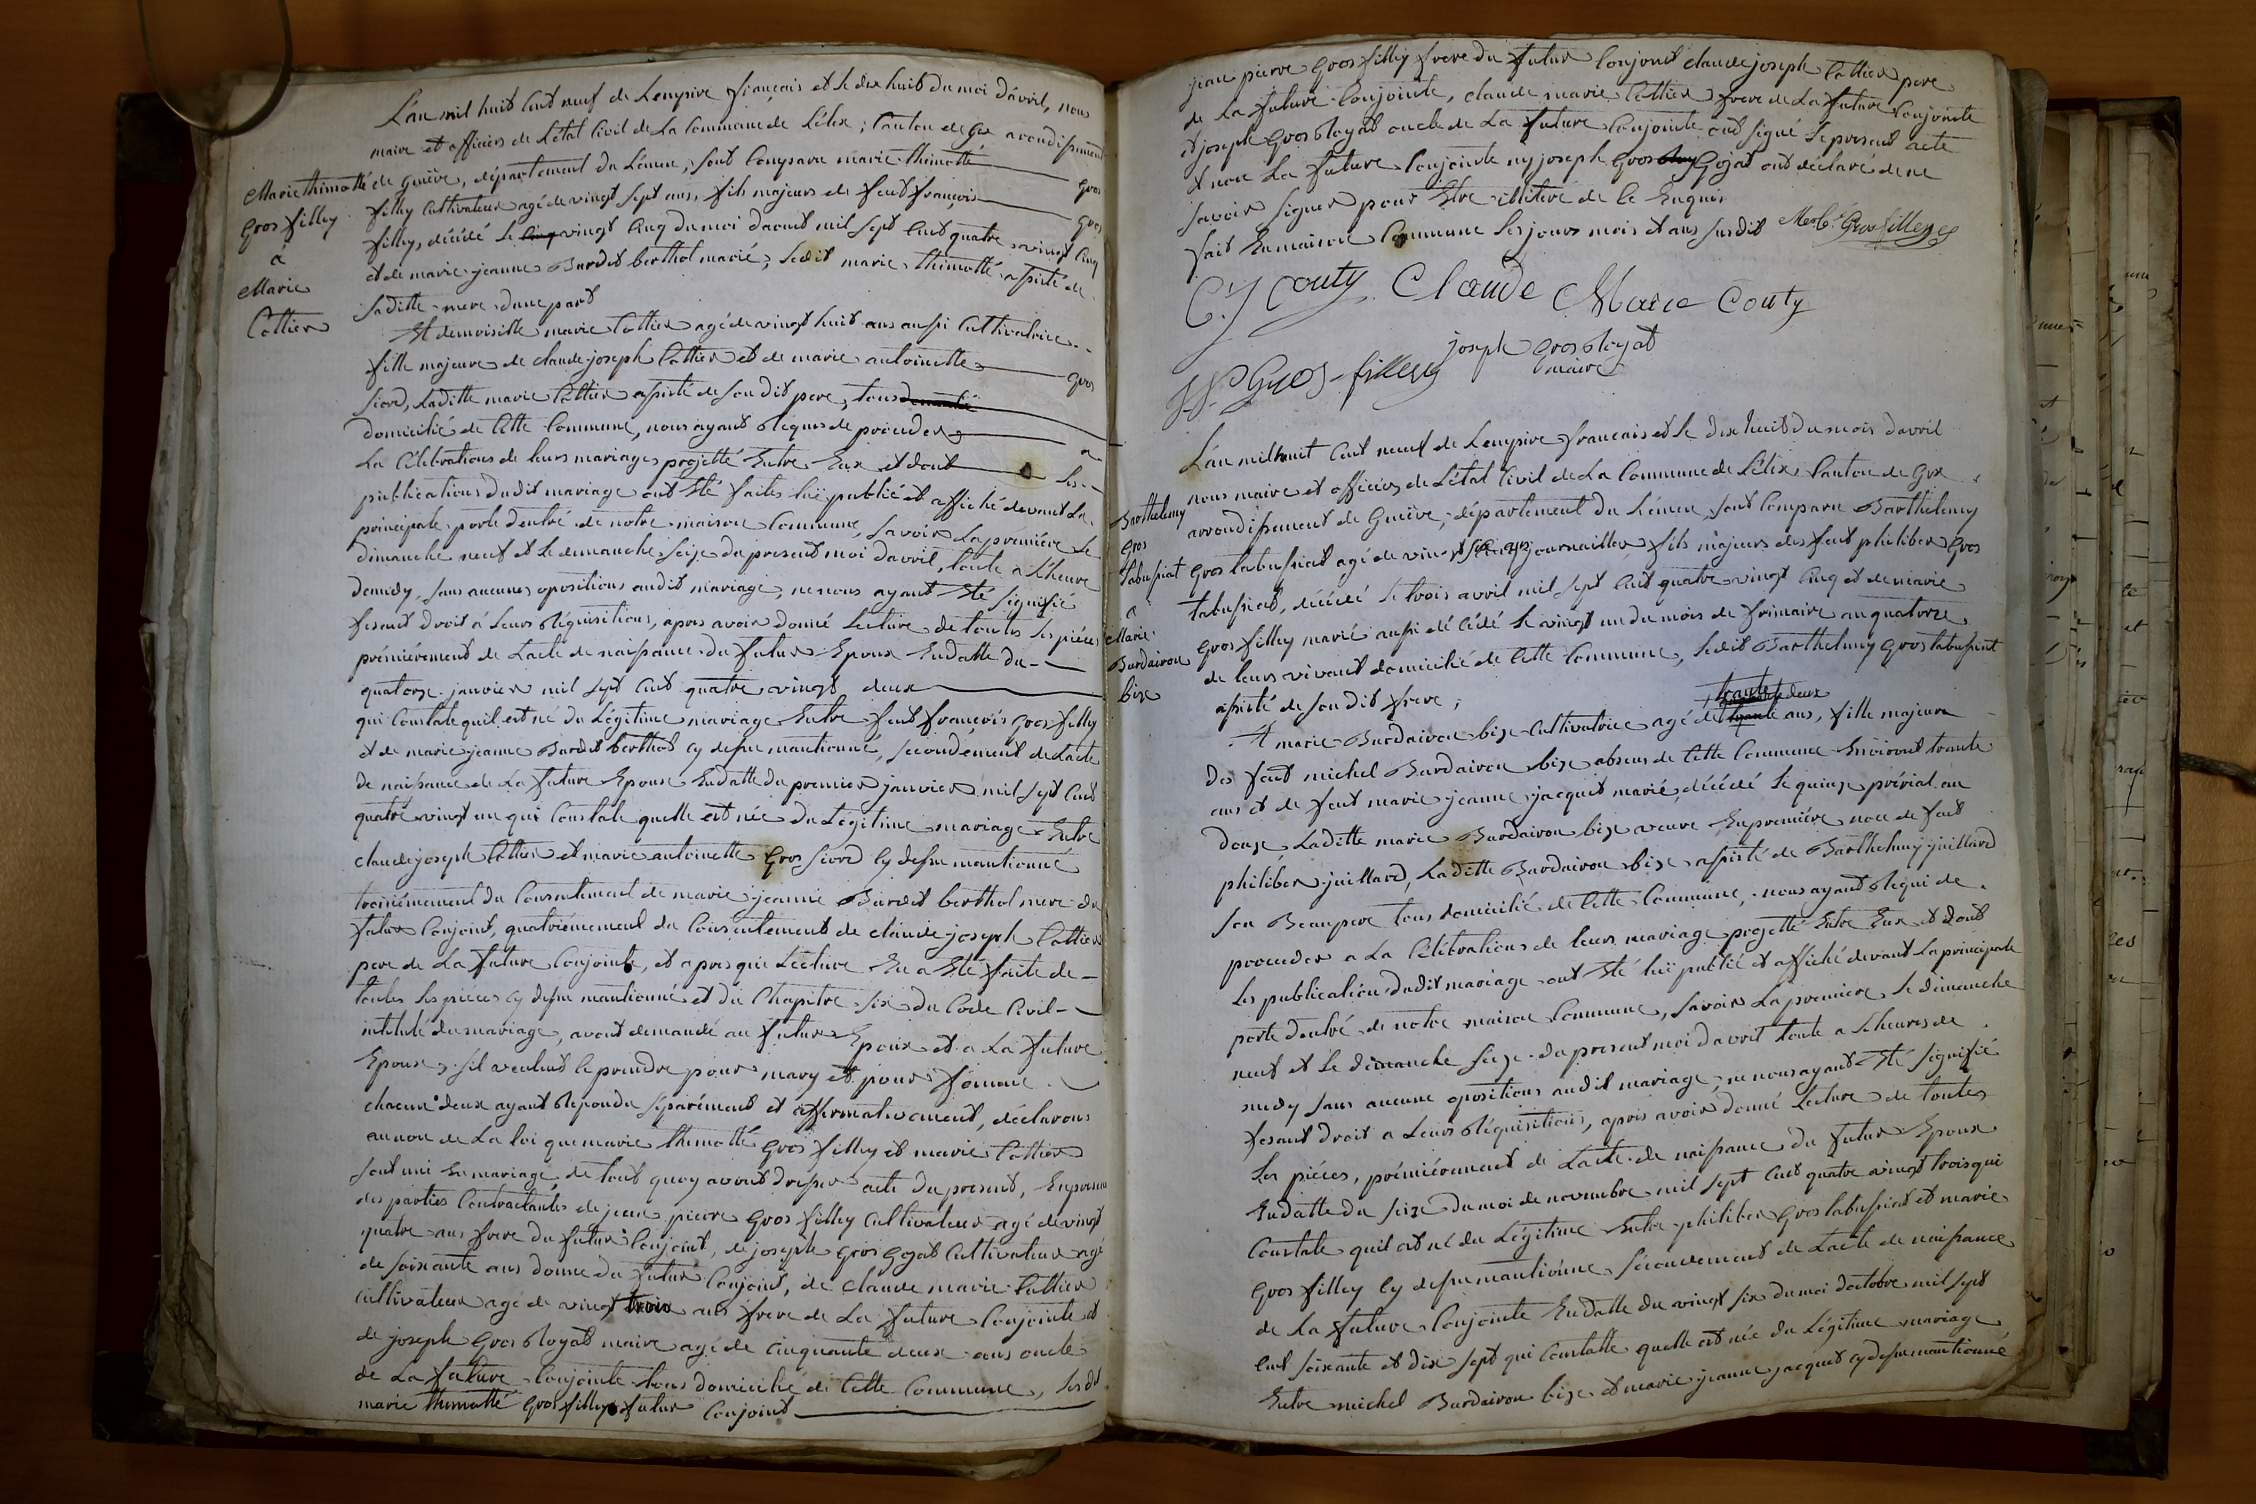 L'an mil huit cent neuf de Lempire français et le dix huit du moi davril, nous
maire et officiers de L'état Civil de La Commune de Lélex ; Canton de Gex arondissement
de Genève, département du Léman, sont Comparu marie thimotté gros
filley Cultivateur agé de vingt sept ans, fils majeurs de feut françois gros
filley, décédé le cinq vingt cinq du moi daout mil sept cent quatre vingt cinq
et de marie jeanne Burdet berthol marié, ledit marie thimotté assisté de
saditte mere dune part
Marie thimotté
Gros filley
a
Marie
Cottier
Et demoiselle marie Cottier agé de vingt huit ans aussi Cultivatrice
fille majeure de claude joseph Cottier et de marie antoinette gros
fiord, Laditte marie Cottier assisté de son dit pere, tous
domicilié de Cette Commune, nous ayant Requis de procéder a
La Célébrations de leurs mariages projetté Entre Eux et dont Les
publications dudit mariage ont Eté faites luë publié et affiché devant La
principale porte dentré de notre maison Commune, Savoir La première Le
dimanche neuf et le dimanche seize du present moi davril, toute a Lheure
demidy, sans aucunes opositions audit mariage, ne nous ayant Eté signifié
fesant droit à Leurs Réquisitions, apres avoir donné Lecture de toutes Les piéces
prémiérement de Lacte de naissance du futur Epoux Endatte du
quatorze janvier mil sept cent quatre vingt deux
qui Constate quil est né du Légitime mariage Entre feut françois gros filley
et de marie jeanne Burdet berthod cy dessu mantionné, secondément de Lacte
de naissance de La future Epouse Endatte du premier janvier mil sept Cent
quatre vingt un qui Constate quelle est née du Légitime mariage Entre
claude joseph Cottier et marie antoinette Gros fiord cy dessu mantionné
troisiémement du Consentement de marie jeanne Burdet berthol mere du
futur Conjoint, quatriémement du Consentement de claude joseph Cottier
pere de La future Conjointe, et apres que Lecture En a Eté faite de
toutes Les piéces cy dessu mantionné et du Chapitre six du Code Civil
intitulé du mariage, avont demandé au futur Epoux et a La future
Epouse, sil veulent le prendre pour mary et pour fomme
chacun deux ayant Repondu séparément et affirmativement, déclarons
au nom de La loi que marie thimotté gros filley et marie Cottier
sont uni En mariage de tout quoy avont dresser acte du present, En presence
des parties Contractantes de jean pierre gros filley cultivateur agé de vingt
quatre ans frere du futur Conjoint, de joseph gros gojat Cultivateur agé
de soixante ans donne du futur Conjoint, de claude marie Cottier
cultivateur agé de vingt trois ans frere de La future Conjointe et
de joseph gros Royat maire agé de cinquante deux ans oncle
de La future Conjointe tous domicilié de Cette Commune, Les dit
marie thimotté gros filley futur Conjoint
jean pierre gros filley frere du futur Conjoint claude joseph Cottier pere
de La future Conjointe, claude marie Cottier frere de La future Conjointe
et joseph gros Royat oncle de La future Conjointe ont signé le present acte
et non La future Conjointe ny joseph gros Gojat ont déclaré de ne
savoir signer pour Etre illitéré de ce Enquis
fait En maison Commune Les jours mois et ans susdit
C. J Couty Claude Marie Couty
joseph gros Royat
maire
J. P. Gros filley
L'an mil huit cent neuf de Lempire francais et le dix huit du mois davril
nous maire et officiers de L'état Civil de La Commune de Lélex, Canton de Gex
arrondissement de Genève, département du Léman, sont Comparu Barthelemy
gros tabussiat agé de vingt six ans journaillier fils majeurs des feut philiber gros
tabussiat, décédé le trois avril mil sept cent quatre vingt cinq et de marie
gros filley marié aussi décédé le vingt un du mois de frimaire an quatorze
de leurs vivant domicilié de Cette Commune, Ledit Barthelemy gros tabussiat
assisté de son dit frere ;
Barthelemy
Gros
tabussiat
a
Marie
Burdairon
bize
trante deux
Et marie Burdairon bize Cultivatrice agé de ans, fille majeure
des feut michel Burdairon bize absens de Cette Commune Environt trante
ans et de feut marie jeanne jacquet marié, décédé le quinze prérial an
douze Laditte marie Burdairon bize veuve En première noce de feut
philiber juillard, Laditte Burdairon bize assisté de Barthelemy juillard
son Beaupere tous domicilié de Cette Commune, nous ayant Requi de
proceder a La Célébrations de leurs mariage projetté Entre Eux et dont
Les publication dudit mariage ont Eté luë publié et affiché devant La principale
porte dentré de notre maison Commune, Savoir La premiere Le dimanche
neuf et Le dimanche seize du present moi davril toute a Lheures de
midy sans aucune opositions audit mariage, ne nous ayant Eté signifié
fesant droit a Leurs Réquisitions, apres avoir donné Lecture de toutes
Les piéces, prémiérement de Lacte de naissance du futur Epoux
Endatte du seize du moi de novembre mil sept Cent quatre vingt trois qui
Constate quil est né du Légitime Entre philiber gros tabussiat et marie
gros filley cy dessu mantionné, sécondement de Lacte de naissance
de La future Conjointe Endatte du vingt six du moi doctobre mil sept
Cent soixante et dix sept qui Constatte quelle est née du Légitime mariage
Entre michel Burdairon bize et marie jeanne jacquet cy dessu mantionné